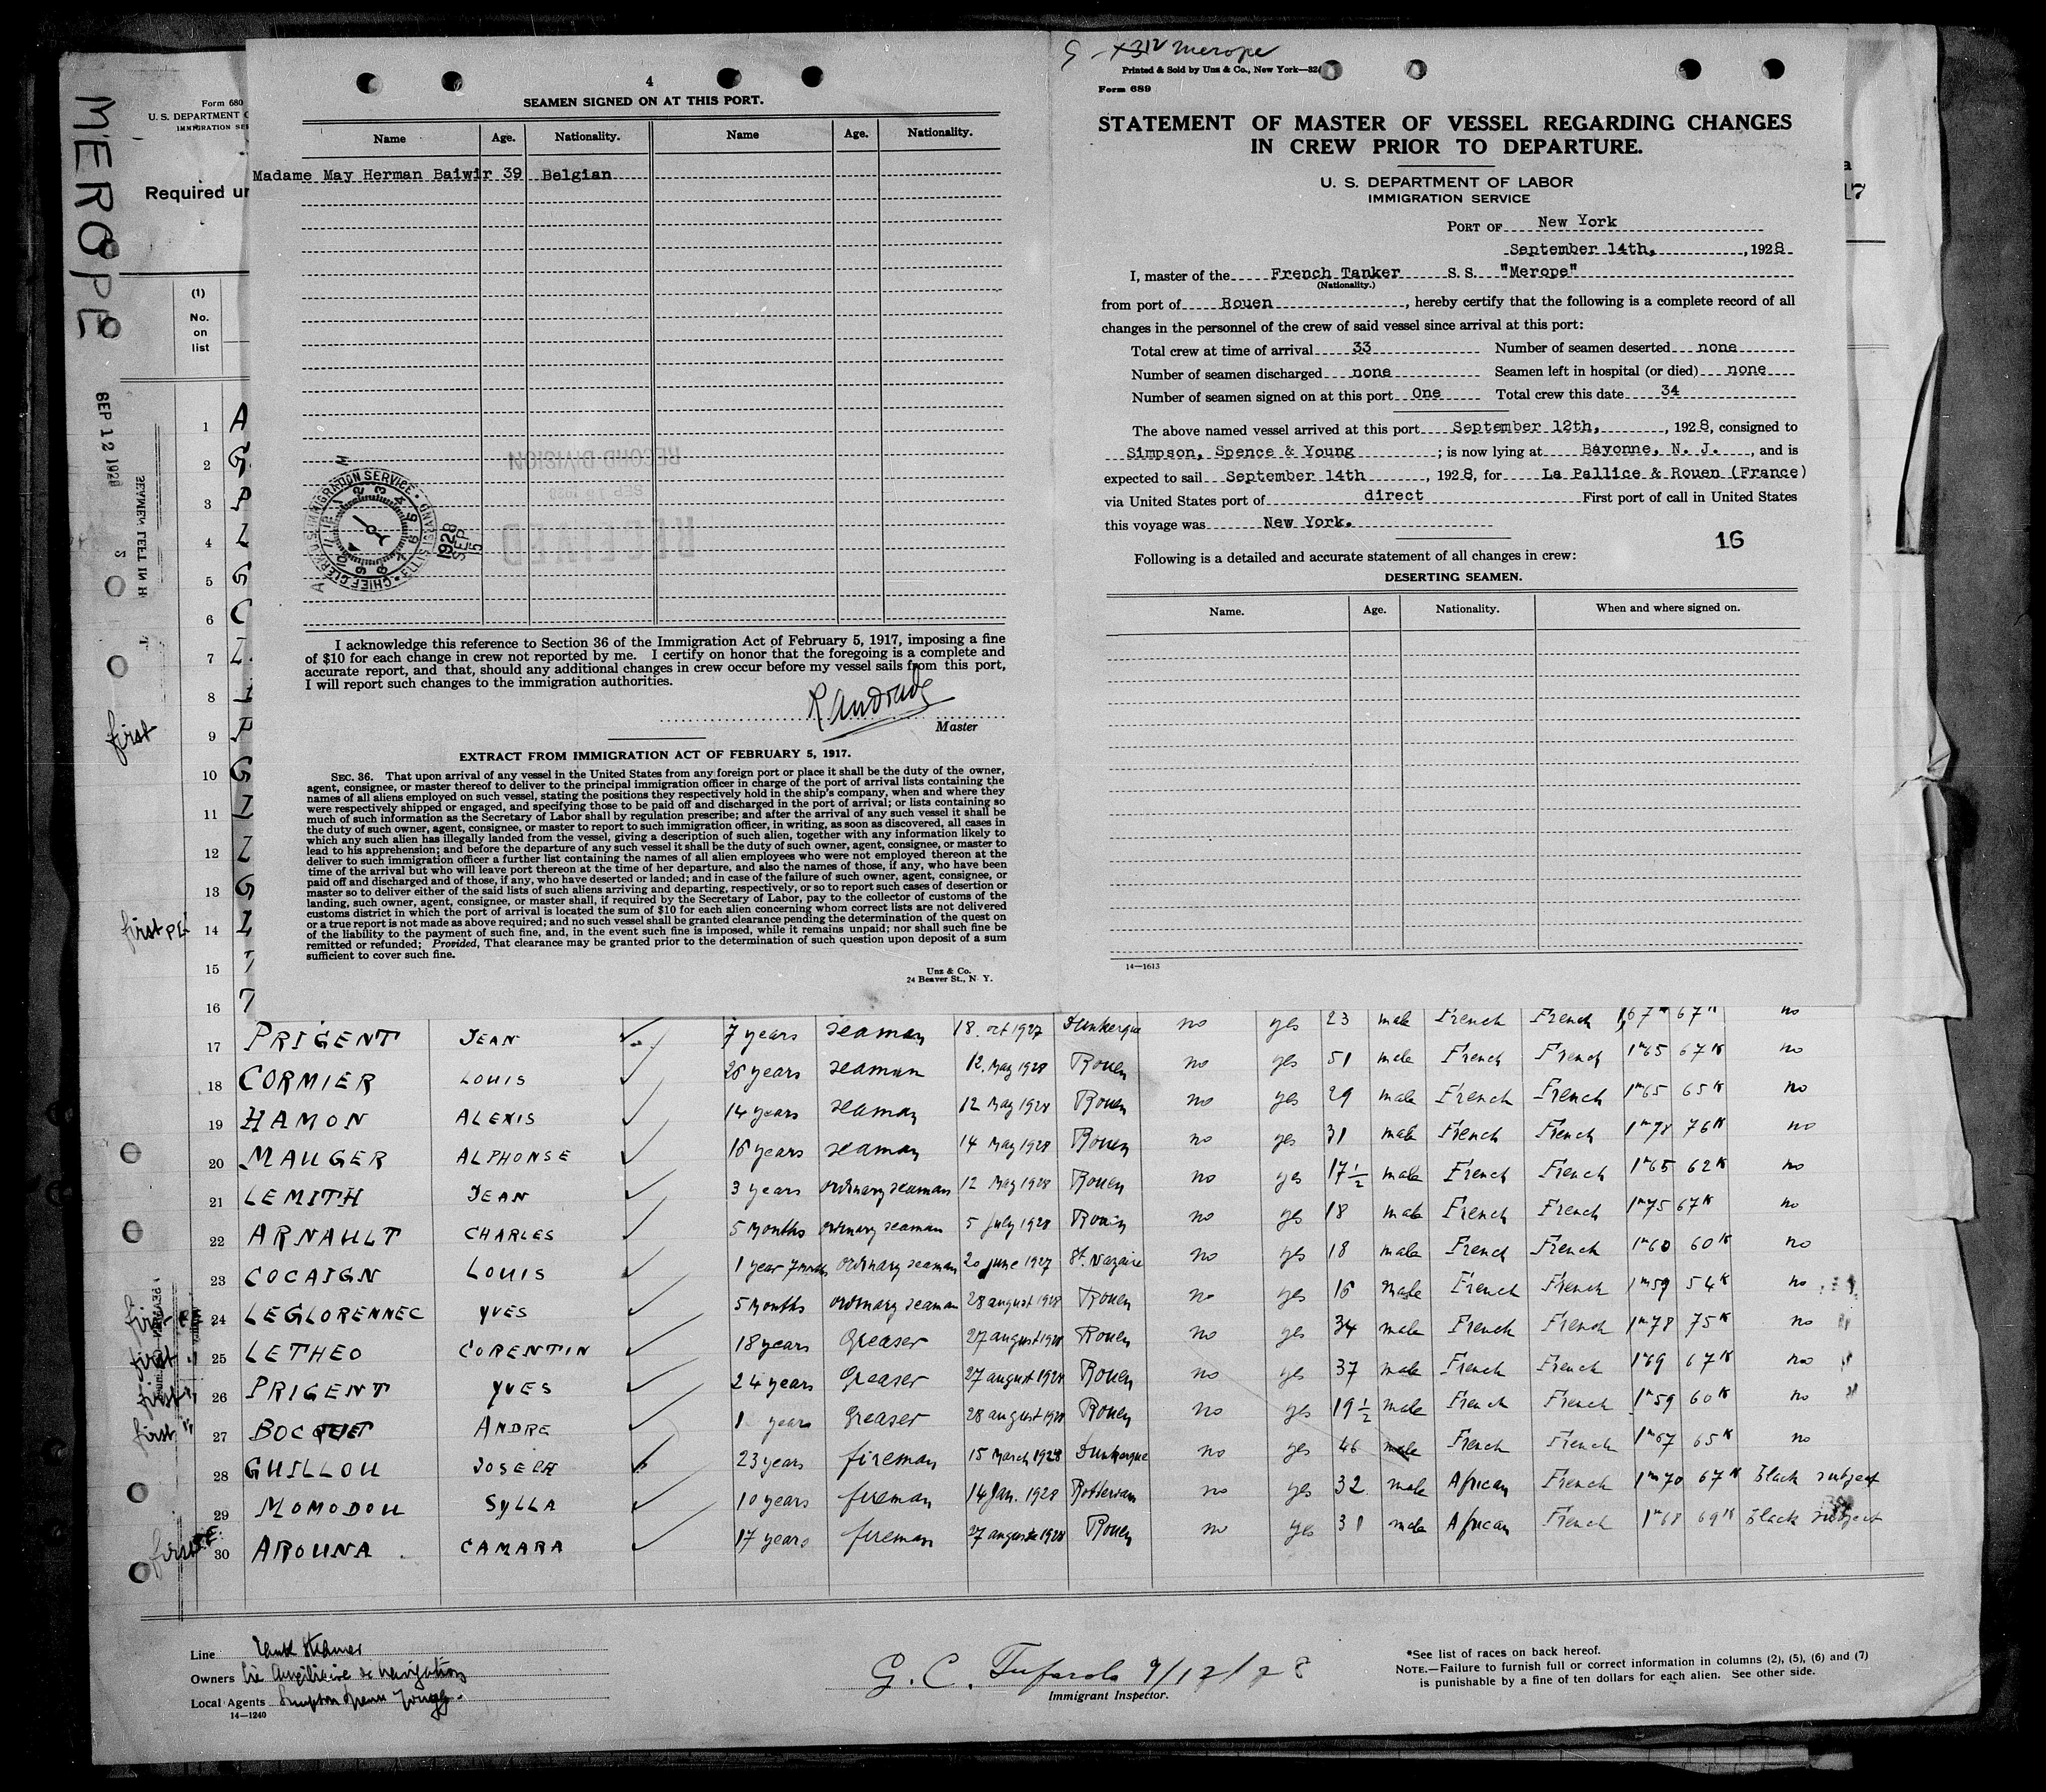 MEROPE
SEP 12 1928
Form 680
U. S. DEPARTMENT O
IMMIGRATION SE
Required un
(1)
No.
on
list
4
SEAMEN SIGNED ON AT THIS PORT.
Name Age. Nationality. Name Age. Nationality.
Madame May Herman Baiwir 39 Belgian
RECORD DIVISION
SEP 15 1928
RECEIVED
CHIEF CLERK U.S. IMMIGRATION SERVICE · ELLIS ISLAND
1928
SEP
5
I acknowledge this reference to Section 36 of the Immigration Act of February 5, 1917, imposing a fine
of $10 for each change in crew not reported by me. I certify on honor that the foregoing is a complete and
accurate report, and that, should any additional changes in crew occur before my vessel sails from this port,
I will report such changes to the immigration authorities.
R. Andrade
Master
EXTRACT FROM IMMIGRATION ACT OF FEBRUARY 5, 1917.
SEC. 36. That upon arrival of any vessel in the United States from any foreign port or place it shall be the duty of the owner,
agent, consignee, or master thereof to deliver to the principal immigration officer in charge of the port of arrival lists containing the
names of all aliens employed on such vessel, stating the positions they respectively hold in the ship's company, when and where they
were respectively shipped or engaged, and specifying those to be paid off and discharged in the port of arrival; or lists containing so
much of such information as the Secretary of Labor shall by regulation prescribe; and after the arrival of any such vessel it shall be
the duty of such owner, agent, consignee, or master to report to such immigration officer, in writing, as soon as discovered, all cases in
which any such alien has illegally landed from the vessel, giving a description of such alien, together with any information likely to
lead to his apprehension; and before the departure of any such vessel it shall be the duty of such owner, agent, consignee, or master to
deliver to such immigration officer a further list containing the names of all alien employees who were not employed thereon at the
time of the arrival but who will leave port thereon at the time of her departure, and also the names of those, if any, who have been
paid off and discharged and of those, if any, who have deserted or landed; and in case of the failure of such owner, agent, consignee, or
master so to deliver either of the said lists of such aliens arriving and departing, respectively, or so to report such cases of desertion or
landing, such owner, agent, consignee, or master shall, if required by the Secretary of Labor, pay to the collector of customs of the
customs district in which the port of arrival is located the sum of $10 for each alien concerning whom correct lists are not delivered
or a true report is not made as above required; and no such vessel shall be granted clearance pending the determination of the quest on
of the liability to the payment of such fine, and, in the event such fine is imposed, while it remains unpaid; nor shall such fine be
remitted or refunded; Provided, That clearance may be granted prior to the determination of such question upon deposit of a sum
sufficient to cover such fine.
Unz & Co.
24 Beaver St., N. Y.
Merope
Printed & Sold by Unz & Co., New York—
Form 689
STATEMENT OF MASTER OF VESSEL REGARDING CHANGES
IN CREW PRIOR TO DEPARTURE.
U. S. DEPARTMENT OF LABOR
IMMIGRATION SERVICE
PORT OF New York
September 14th, , 1928
I, master of the French Tanker S. S. "Merope"
(Nationality.)
from port of Rouen , hereby certify that the following is a complete record of all
changes in the personnel of the crew of said vessel since arrival at this port:
Total crew at time of arrival 33 Number of seamen deserted none
Number of seamen discharged none Seamen left in hospital (or died) none
Number of seamen signed on at this port One Total crew this date 34
The above named vessel arrived at this port September 12th, , 1928, consigned to
Simpson, Spence & Young ; is now lying at Bayonne, N. J. , and is
expected to sail September 14th , 1928, for La Pallice & Rouen (France)
via United States port of direct First port of call in United States
this voyage was New York.
16
Following is a detailed and accurate statement of all changes in crew:
DESERTING SEAMEN.
Name. Age. Nationality. When and where signed on.
14—1613
1 A
2 G
3 P
4 L
5 G
6 C
7 L
8
first 9 P
10 G
11 L
12 L
13 G
first 14 L
15
16
17 PRIGENT JEAN 7 years seaman 18. Oct 1927 Dunkerque no yes 23 male French French 1,67 67 no
18 CORMIER LOUIS 26 years seaman 12. May 1928 Rouen no yes 51 male French French 1m65 67K no
19 HAMON ALEXIS 14 years seaman 12 May 1928 Rouen no yes 29 male French French 1m65 65K no
20 MAUGER ALPHONSE 16 years seaman 14 May 1928 Rouen no yes 31 male French French 1m78 76K no
21 LEMITH JEAN 3 years ordinary seaman 12 May 1928 Rouen no yes 17½ male French French 1m65 62K no
22 ARNAULT CHARLES 5 months ordinary seaman 5 July 1928 Rouen no yes 18 male French French 1m75 67K no
23 COCAIGN LOUIS 1 year 7 months ordinary seaman 20 June 1927 St. Nazaire no yes 18 male French French 1m60 60K no
first 24 LEGLORENNEC YVES 5 months ordinary seaman 28 august 1928 Rouen no yes 16 male French French 1m59 54K no
first 25 LETHEO CORENTIN 18 years Greaser 27 august 1928 Rouen no yes 34 male French French 1m78 75K no
first 26 PRIGENT YVES 24 years Greaser 27 august 1928 Rouen no yes 37 male French French 1m69 67K no
first 27 BOCQUET ANDRE 1 years Greaser 28 august 1928 Rouen no yes 19½ male French French 1m59 60K no
28 GUILLOU JOSEPH 23 years fireman 15 March 1928 Dunkerque no yes 46 male French French 1m67 65K no
29 MOMODOU SYLLA 10 years fireman 14 Jan. 1928 Rotterdam no yes 32 male African French 1m70 67K black subject
first 30 AROUNA CAMARA 17 years fireman 27 august 1928 Rouen no yes 31 male African French 1m68 69K black subject
Line Tank Steamer
Owners Cie Auxiliaire de Navigation
Local Agents Simpson Spence Young
14—1240
G. C. Tufarolo 9/12/28
Immigrant Inspector.
*See list of races on back hereof.
NOTE.—Failure to furnish full or correct information in columns (2), (5), (6) and (7)
is punishable by a fine of ten dollars for each alien. See other side.